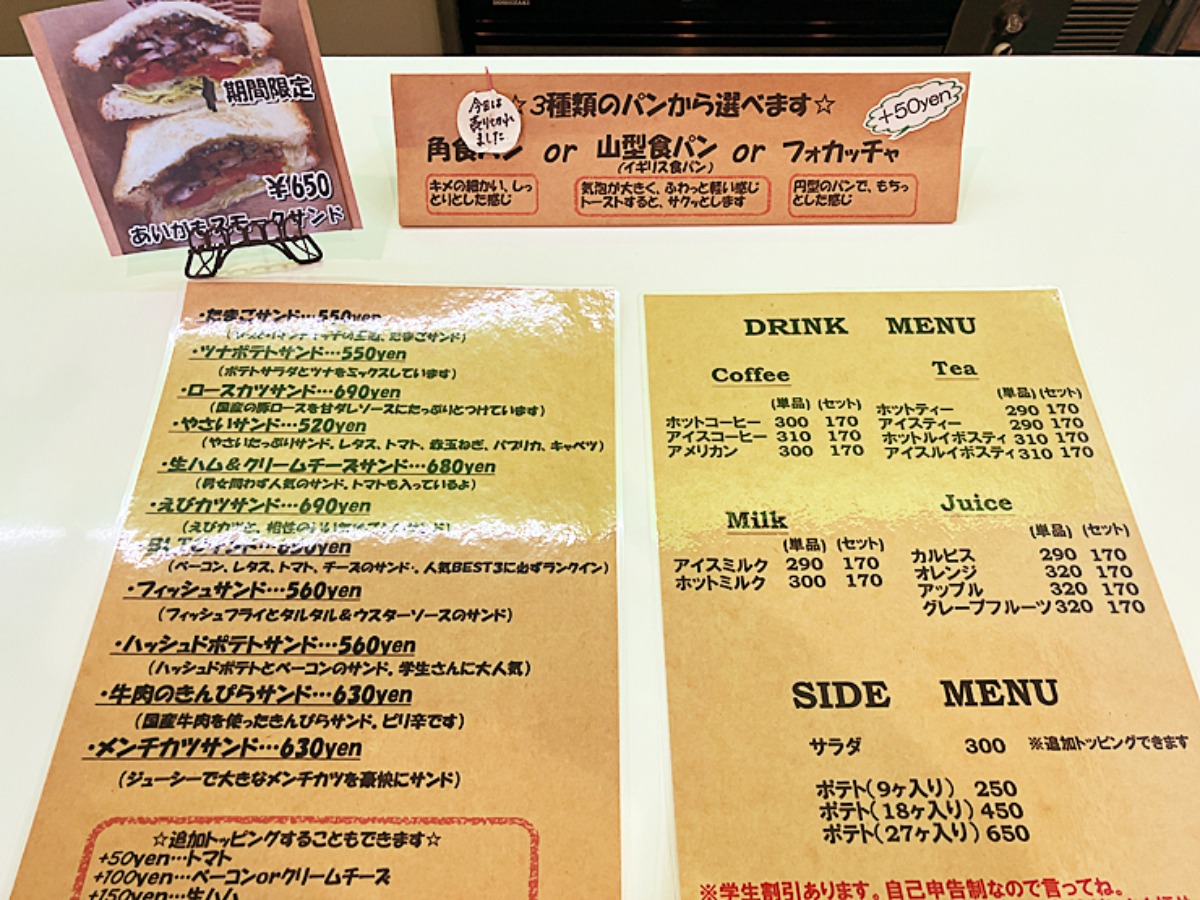 期間限定
¥650
あいがもスモークサンド
☆3種類のパンから選べます☆
+50yen
今日は
売り切れ
ました
角食パン or 山型食パン or フォカッチャ
(イギリス食パン)
キメの細かい、しっ
とりとした感じ
気泡が大きく、ふわっと軽い感じ
トーストすると、サクッとします
円型のパンで、もちっ
とした感じ
・たまごサンド…550yen
たまごサンド)
・ツナポテトサンド…550yen
(ポテトサラダとツナをミックスしています)
・ロースカツサンド…690yen
(国産の豚ロースを甘ダレソースにたっぷりとつけています)
・やさいサンド…520yen
(やさいたっぷりサンド。レタス、トマト、赤玉ねぎ、パプリカ、キャベツ)
・生ハム&クリームチーズサンド…680yen
(男女問わず人気のサンド。トマトも入っているよ)
・えびカツサンド…690yen
(えびカツと、相性のいい
サンド…690yen
(ベーコン、レタス、トマト、チーズのサンド・。人気BEST3に必ずランクイン)
・フィッシュサンド…560yen
(フィッシュフライとタルタル&ウスターソースのサンド)
・ハッシュドポテトサンド…560yen
(ハッシュドポテトとベーコンのサンド。学生さんに大人気)
・牛肉のきんぴらサンド…630yen
(国産牛肉を使ったきんぴらサンド。ピリ辛です)
・メンチカツサンド…630yen
(ジューシーで大きなメンチカツを豪快にサンド)
☆追加トッピングすることもできます☆
+50yen…トマト
+100yen…ベーコンorクリームチーズ
+150yen…生ハム
DRINK MENU
Coffee
(単品) (セット)
ホットコーヒー 300 170
アイスコーヒー 310 170
アメリカン 300 170
Tea
(単品) (セット)
ホットティー 290 170
アイスティー 290 170
ホットルイボスティ 310 170
アイスルイボスティ 310 170
Milk
(単品) (セット)
アイスミルク 290 170
ホットミルク 300 170
Juice
(単品) (セット)
カルピス 290 170
オレンジ 320 170
アップル 320 170
グレープフルーツ 320 170
SIDE MENU
サラダ 300 ※追加トッピングできます
ポテト(9ヶ入り) 250
ポテト(18ヶ入り) 450
ポテト(27ヶ入り) 650
※学生割引あります。自己申告制なので言ってね。